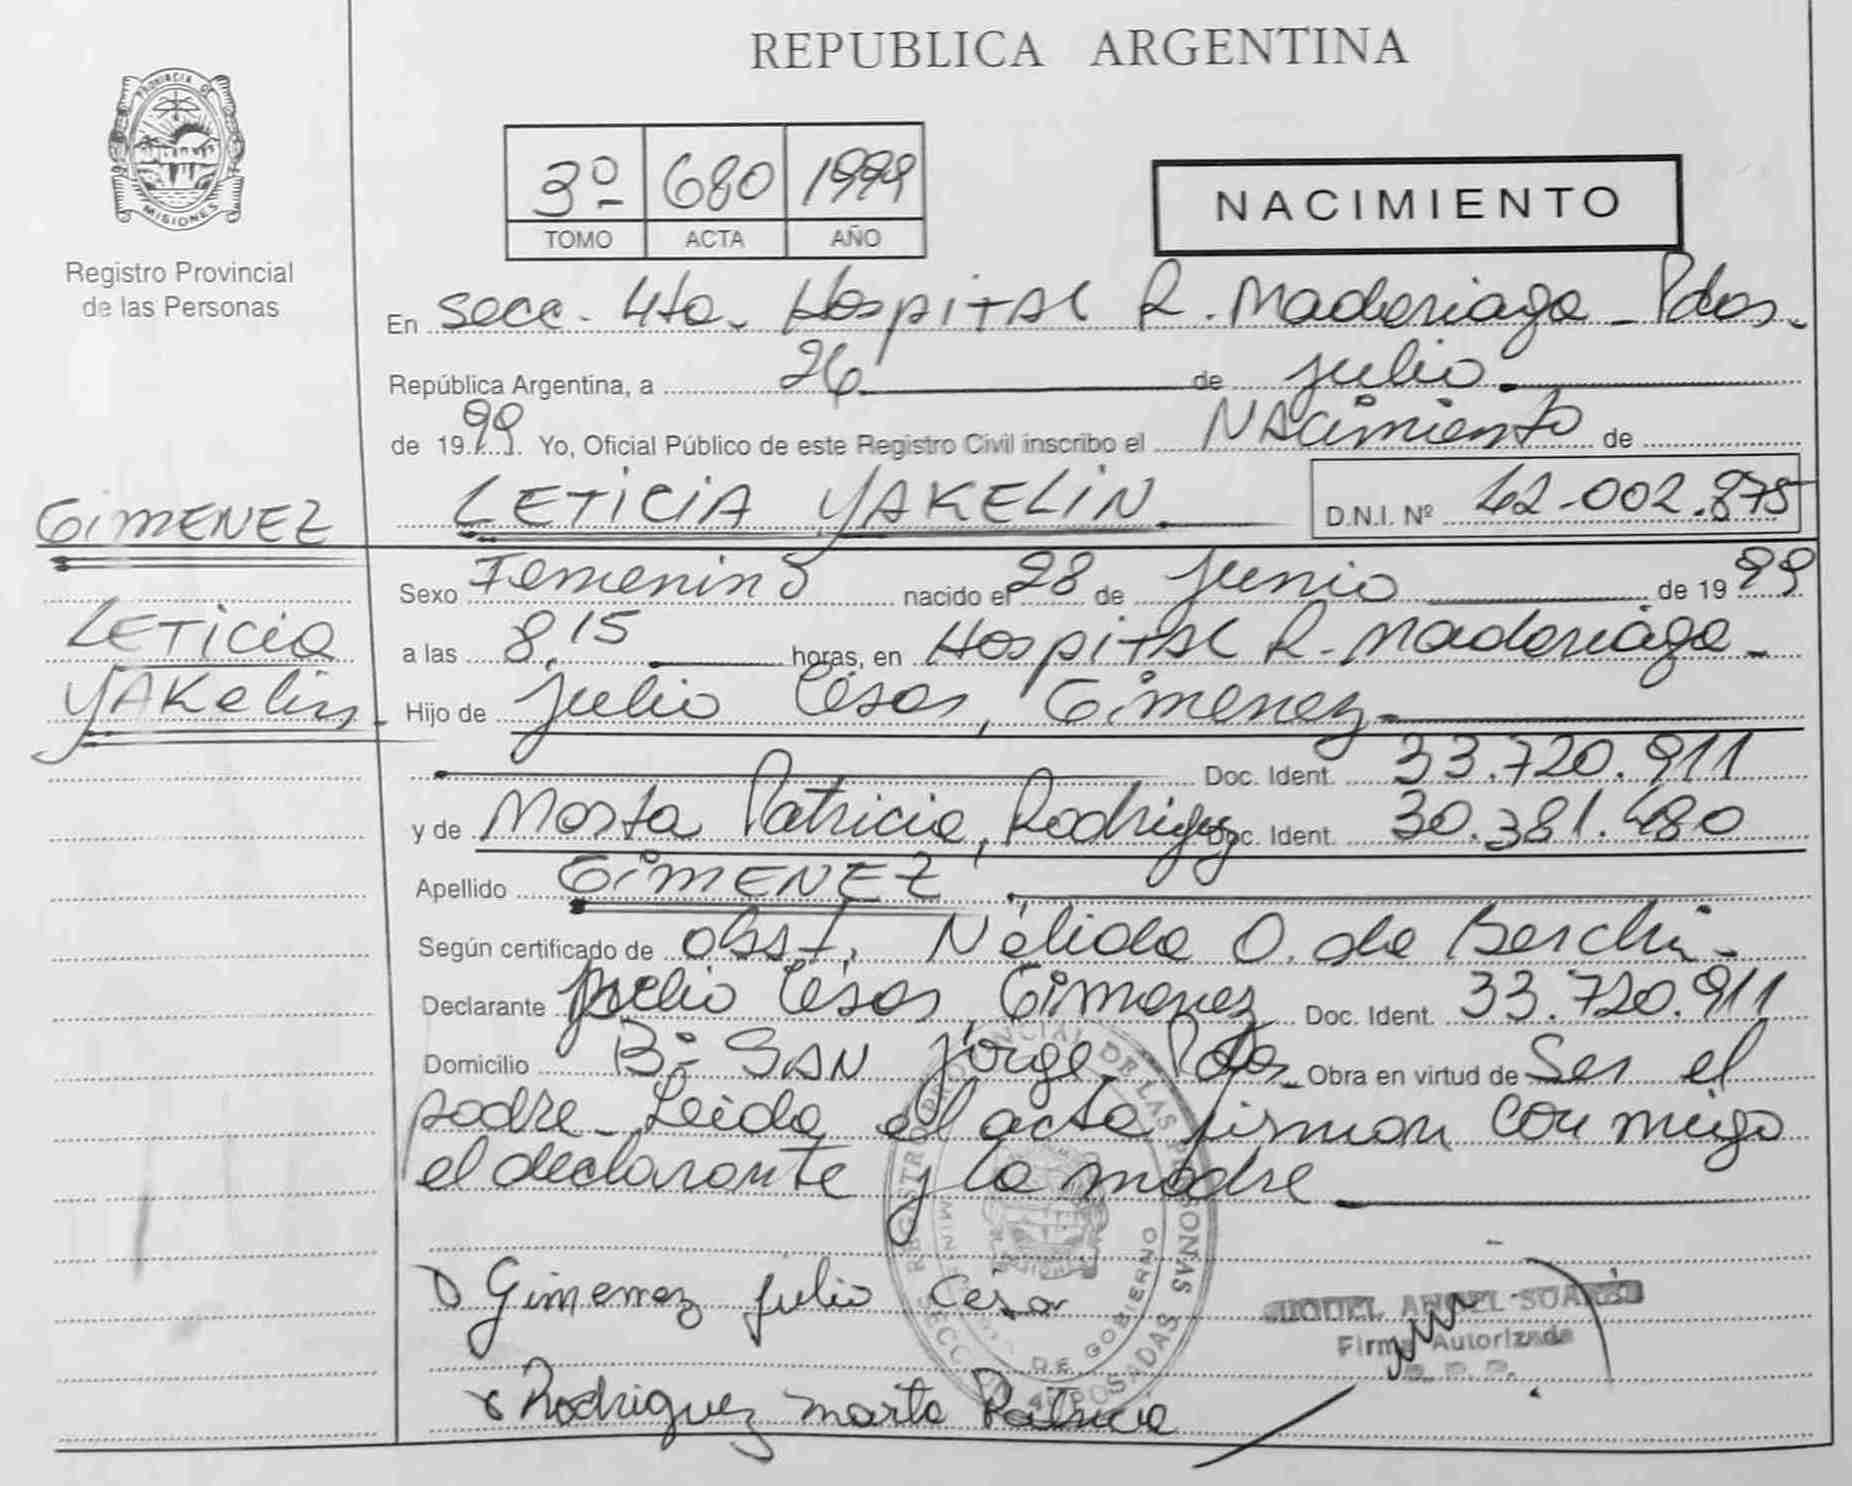 REPUBLICA ARGENTINA
PROVINCIA DE
MISIONES
Registro Provincial
de las Personas
3º 680 1999
TOMO ACTA AÑO
NACIMIENTO
En Secc. 4ta. Hospital R. Madariaga - Pdas.
República Argentina, a 26 de julio
de 1999. Yo, Oficial Público de este Registro Civil inscribo el Nacimiento de
LETICIA YAKELIN D.N.I. Nº 42.002.875
GIMENEZ
Leticia
Yakelin
Sexo Femenino nacido el 28 de junio de 1999
a las 8,15 horas, en Hospital R. Madariaga -
Hijo de Julio César, Gimenez
Doc. Ident. 33.720.911
y de Marta Patricia, Rodriguez Doc. Ident. 30.381.480
Apellido GIMENEZ
Según certificado de obst. Nélida O. de Berchi -
Declarante Julio César Gimenez Doc. Ident. 33.720.911
Domicilio Bº San Jorge Pdas - Obra en virtud de ser el
padre - Leida el acta firman con migo
el declarante y la madre
Gimenez julio Cesar
Rodriguez marta Patricia
REGISTRO PROVINCIAL DE LAS PERSONAS
DE GOBIERNO
SECC. 4ª POSADAS
ANGEL SUAREZ
Firma Autorizada